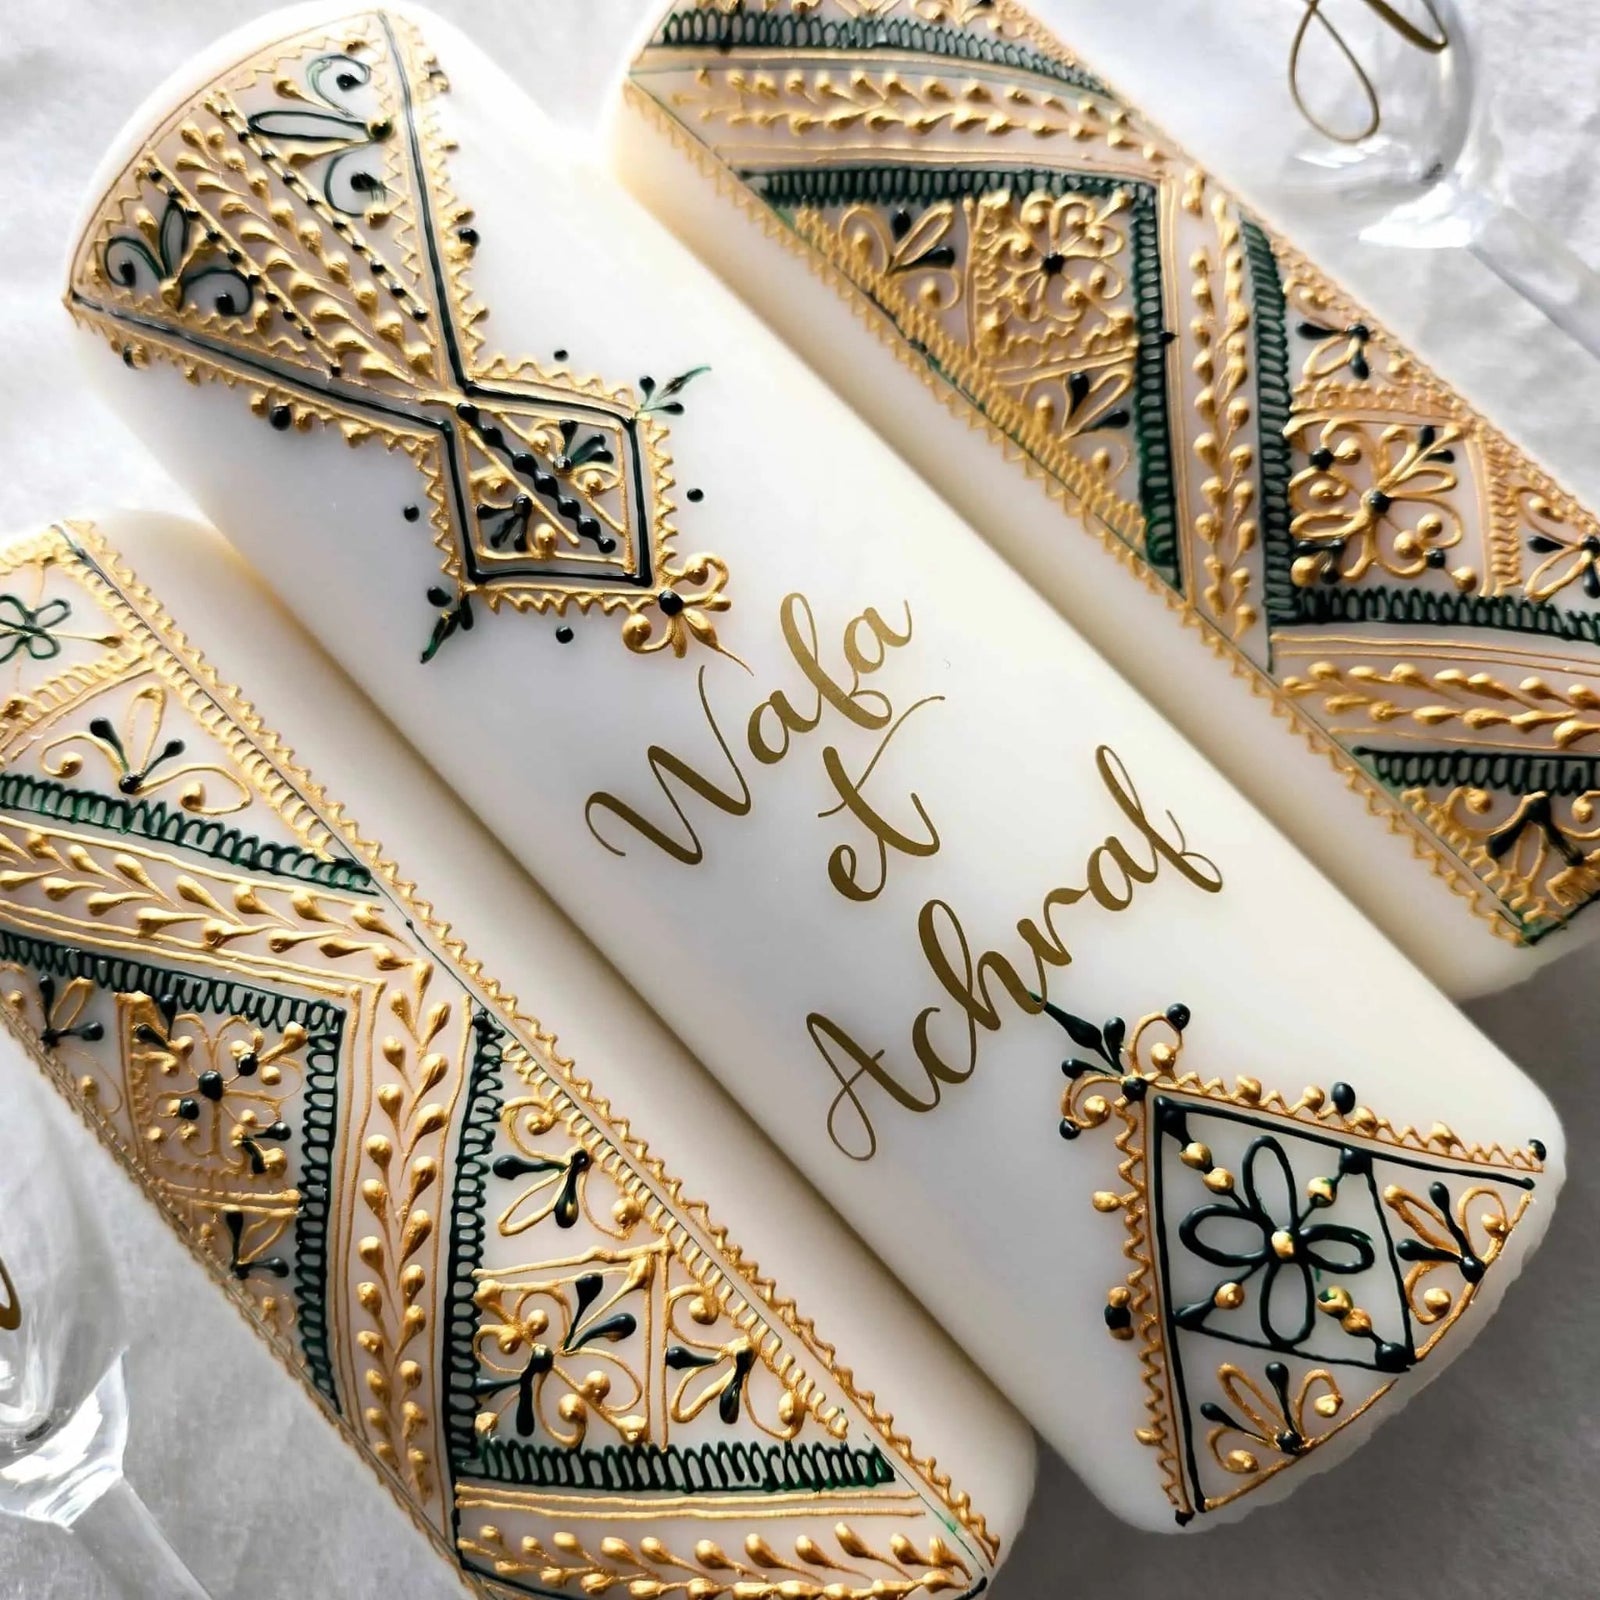 Wafa
et
Achraf